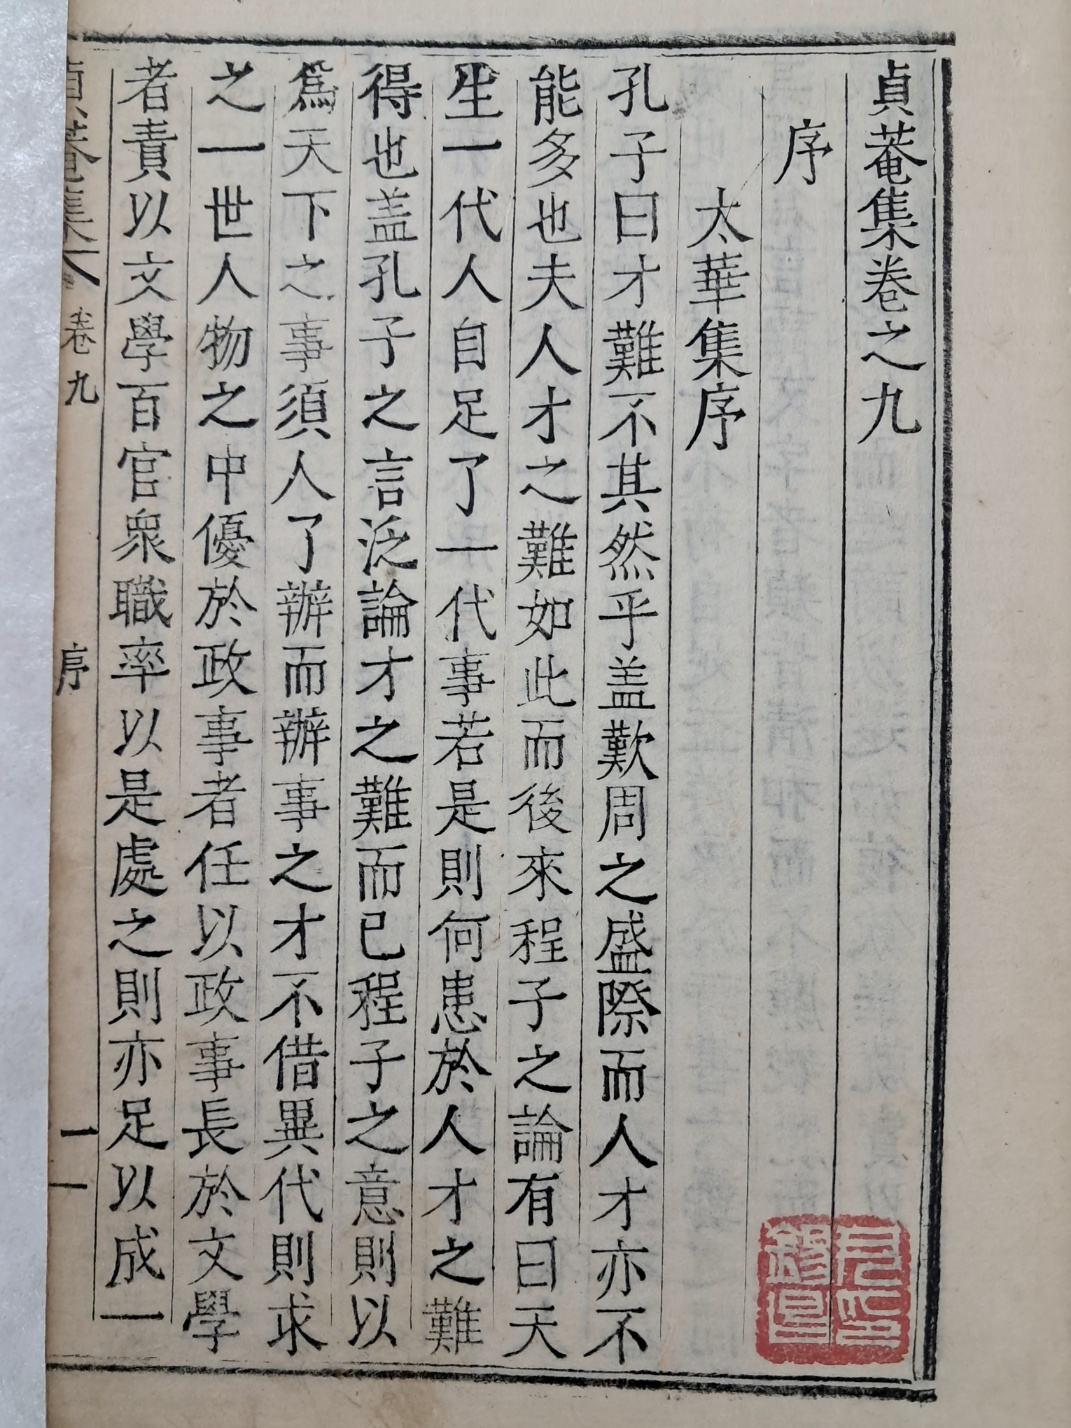 貞菴集卷之九
序
太華集序
孔子曰才難不其然乎盖歎周之盛際而人才亦不
能多也夫人才之難如此而後來程子之論有曰天
生一代人自足了一代事若是則何患於人才之難
得也盖孔子之言泛論才之難而已程子之意則以
爲天下之事須人了辦而辦事之才不借異代則求
之一世人物之中優於政事者任以政事長於文學
者責以文學百官衆職率以是處之則亦足以成一
貞菴集 卷九 序 一